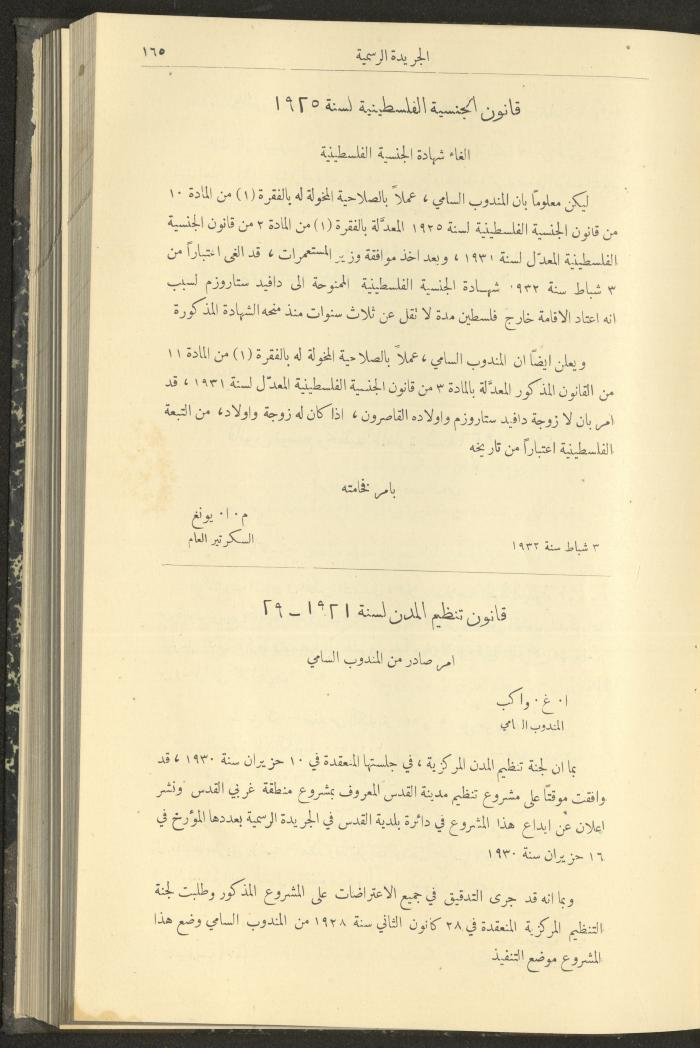 الجريدة الرسمية ١٦٥
قانون الجنسية الفلسطينية لسنة ١٩٢٥
الغاء شهادة الجنسية الفلسطينية
ليكن معلومًا بان المندوب السامي ، عملاً بالصلاحية المخولة له بالفقرة (١) من المادة ١٠
من قانون الجنسية الفلسطينية لسنة ١٩٢٥ المعدَّلة بالفقرة (١) من المادة ٢ من قانون الجنسية
الفلسطينية المعدّل لسنة ١٩٣١ ، وبعد اخذ موافقة وزير المستعمرات ، قد الغى اعتباراً من
٣ شباط سنة ٩٣٢٠ شهادة الجنسية الفلسطينية الممنوحة الى دافيد ستاروزم لسبب
انه اعتاد الاقامة خارج فلسطين مدة لا تقل عن ثلاث سنوات منذ منحه الشهادة المذكورة
ويعلن ايضًا ان المندوب السامي ، عملاً بالصلاحية المخولة له بالفقرة (١) من المادة ١١
من القانون المذكور المعدَّلة بالمادة ٣ من قانون الجنسية الفلسطينية المعدّل لسنة ١٩٣١ ، قد
امر بان لا زوجة دافيد ستاروزم واولاده القاصرون ، اذا كان له زوجة واولاد، من التبعة
الفلسطينية اعتباراً من تاريخه
بامر فخامته
م ٠ ا ٠ يونغ
السكرتير العام
٣ شباط سنة ١٩٣٢
قانون تنظيم المدن لسنة ١٩٢١ – ٢٩
امر صادر من المندوب السامي
ا ٠ غ ٠ واكب
المندوب السامي
بما ان لجنة تنظيم المدن المركزية ، في جلستها المنعقدة في ١٠ حزيران سنة ١٩٣٠ ، قد
وافقت موقتًا على مشروع تنظيم مدينة القدس المعروف بمشروع منطقة غربي القدس ونشر
اعلان عن ايداع هذا المشروع في دائرة بلدية القدس في الجريدة الرسمية بعددها المؤرخ في
١٦ حزيران سنة ١٩٣٠
وبما انه قد جرى التدقيق في جميع الاعتراضات على المشروع المذكور وطلبت لجنة
التنظيم المركزية المنعقدة في ٢٨ كانون الثاني سنة ١٩٢٨ من المندوب السامي وضع هذا
المشروع موضع التنفيذ